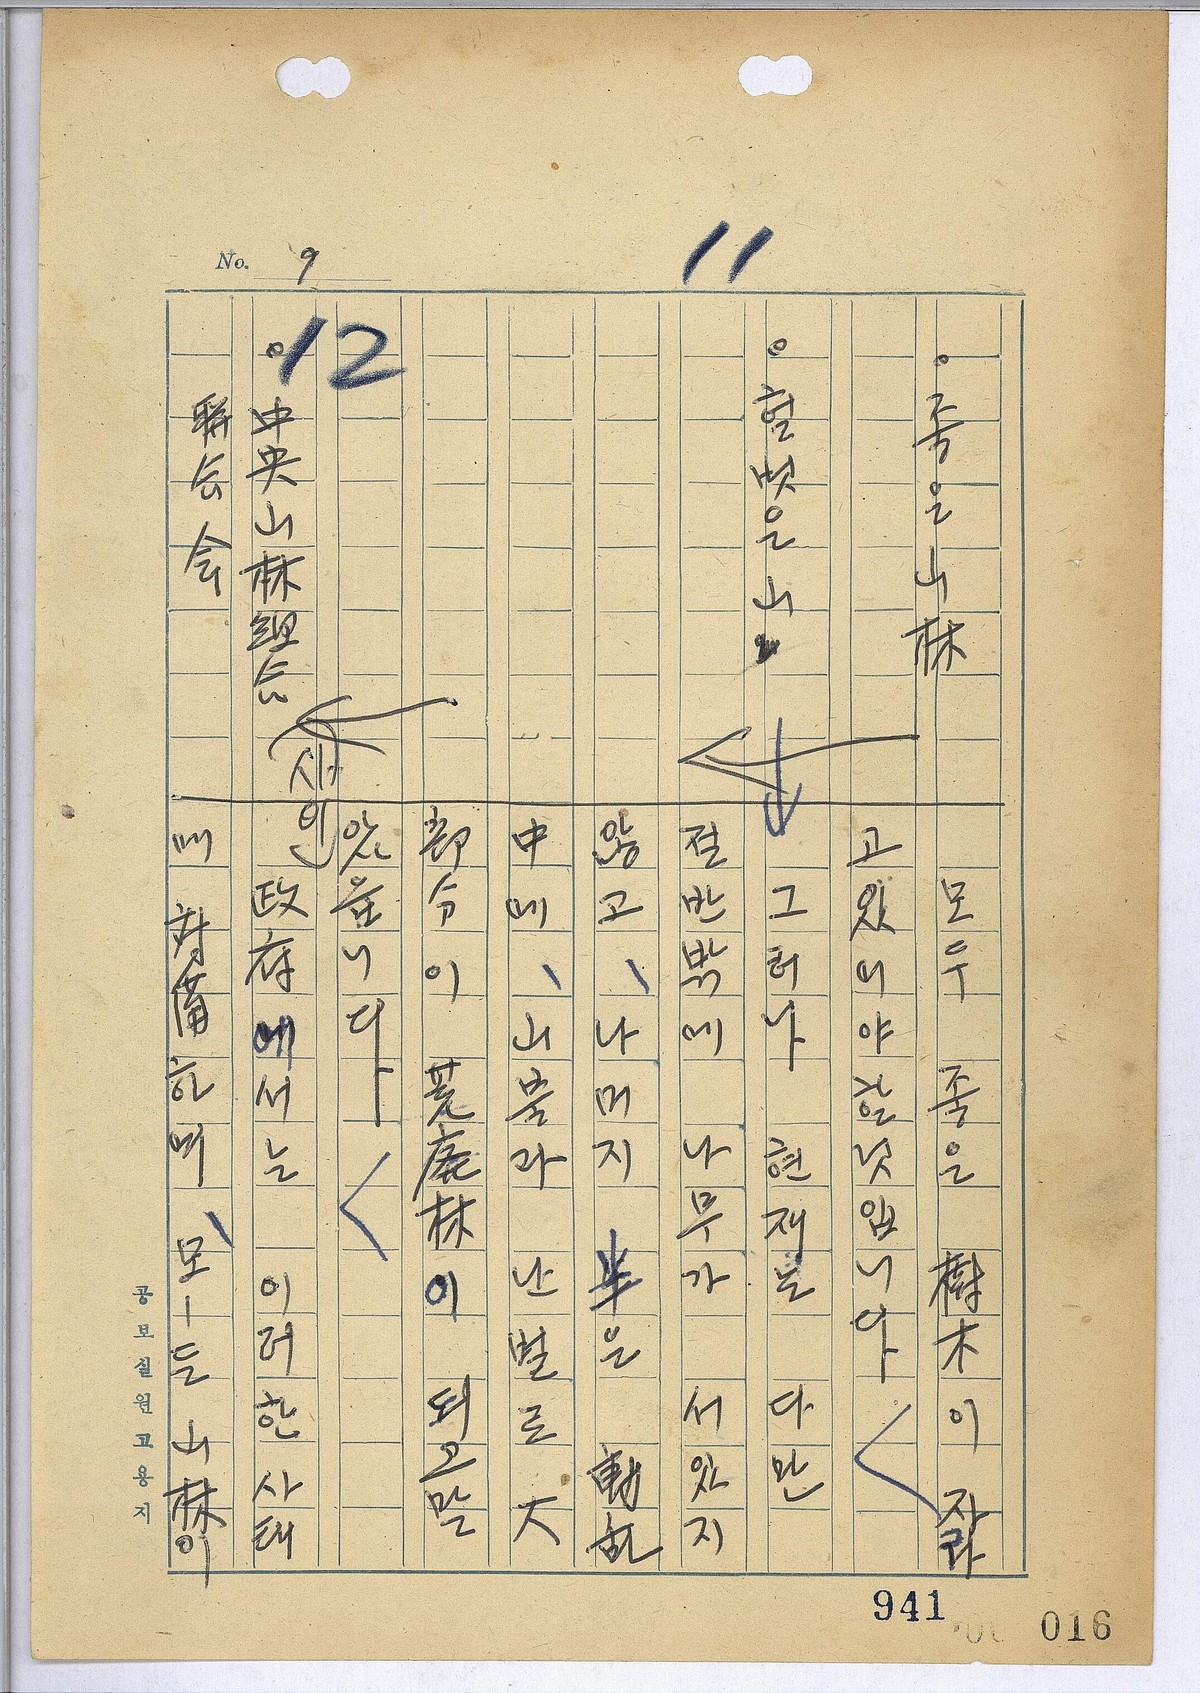 No. 9
11
。좋은 山林
모우 좋은 樹木이 자라
고 있어야 할 것입니다
。헐벗은 山
그러나 현재는 다만
절반밖에 나무가 서 있지
않고、 나머지 半은 動乱
中에、 山불과 난벌로 大
部分이 荒廃林이 되고 말
았읍니다
12
。中央山林組合
聯合会
(사인)
政府에서는 이러한 사태
에 対備하며、 모ー든 山林이
공보실원고용지
941
016